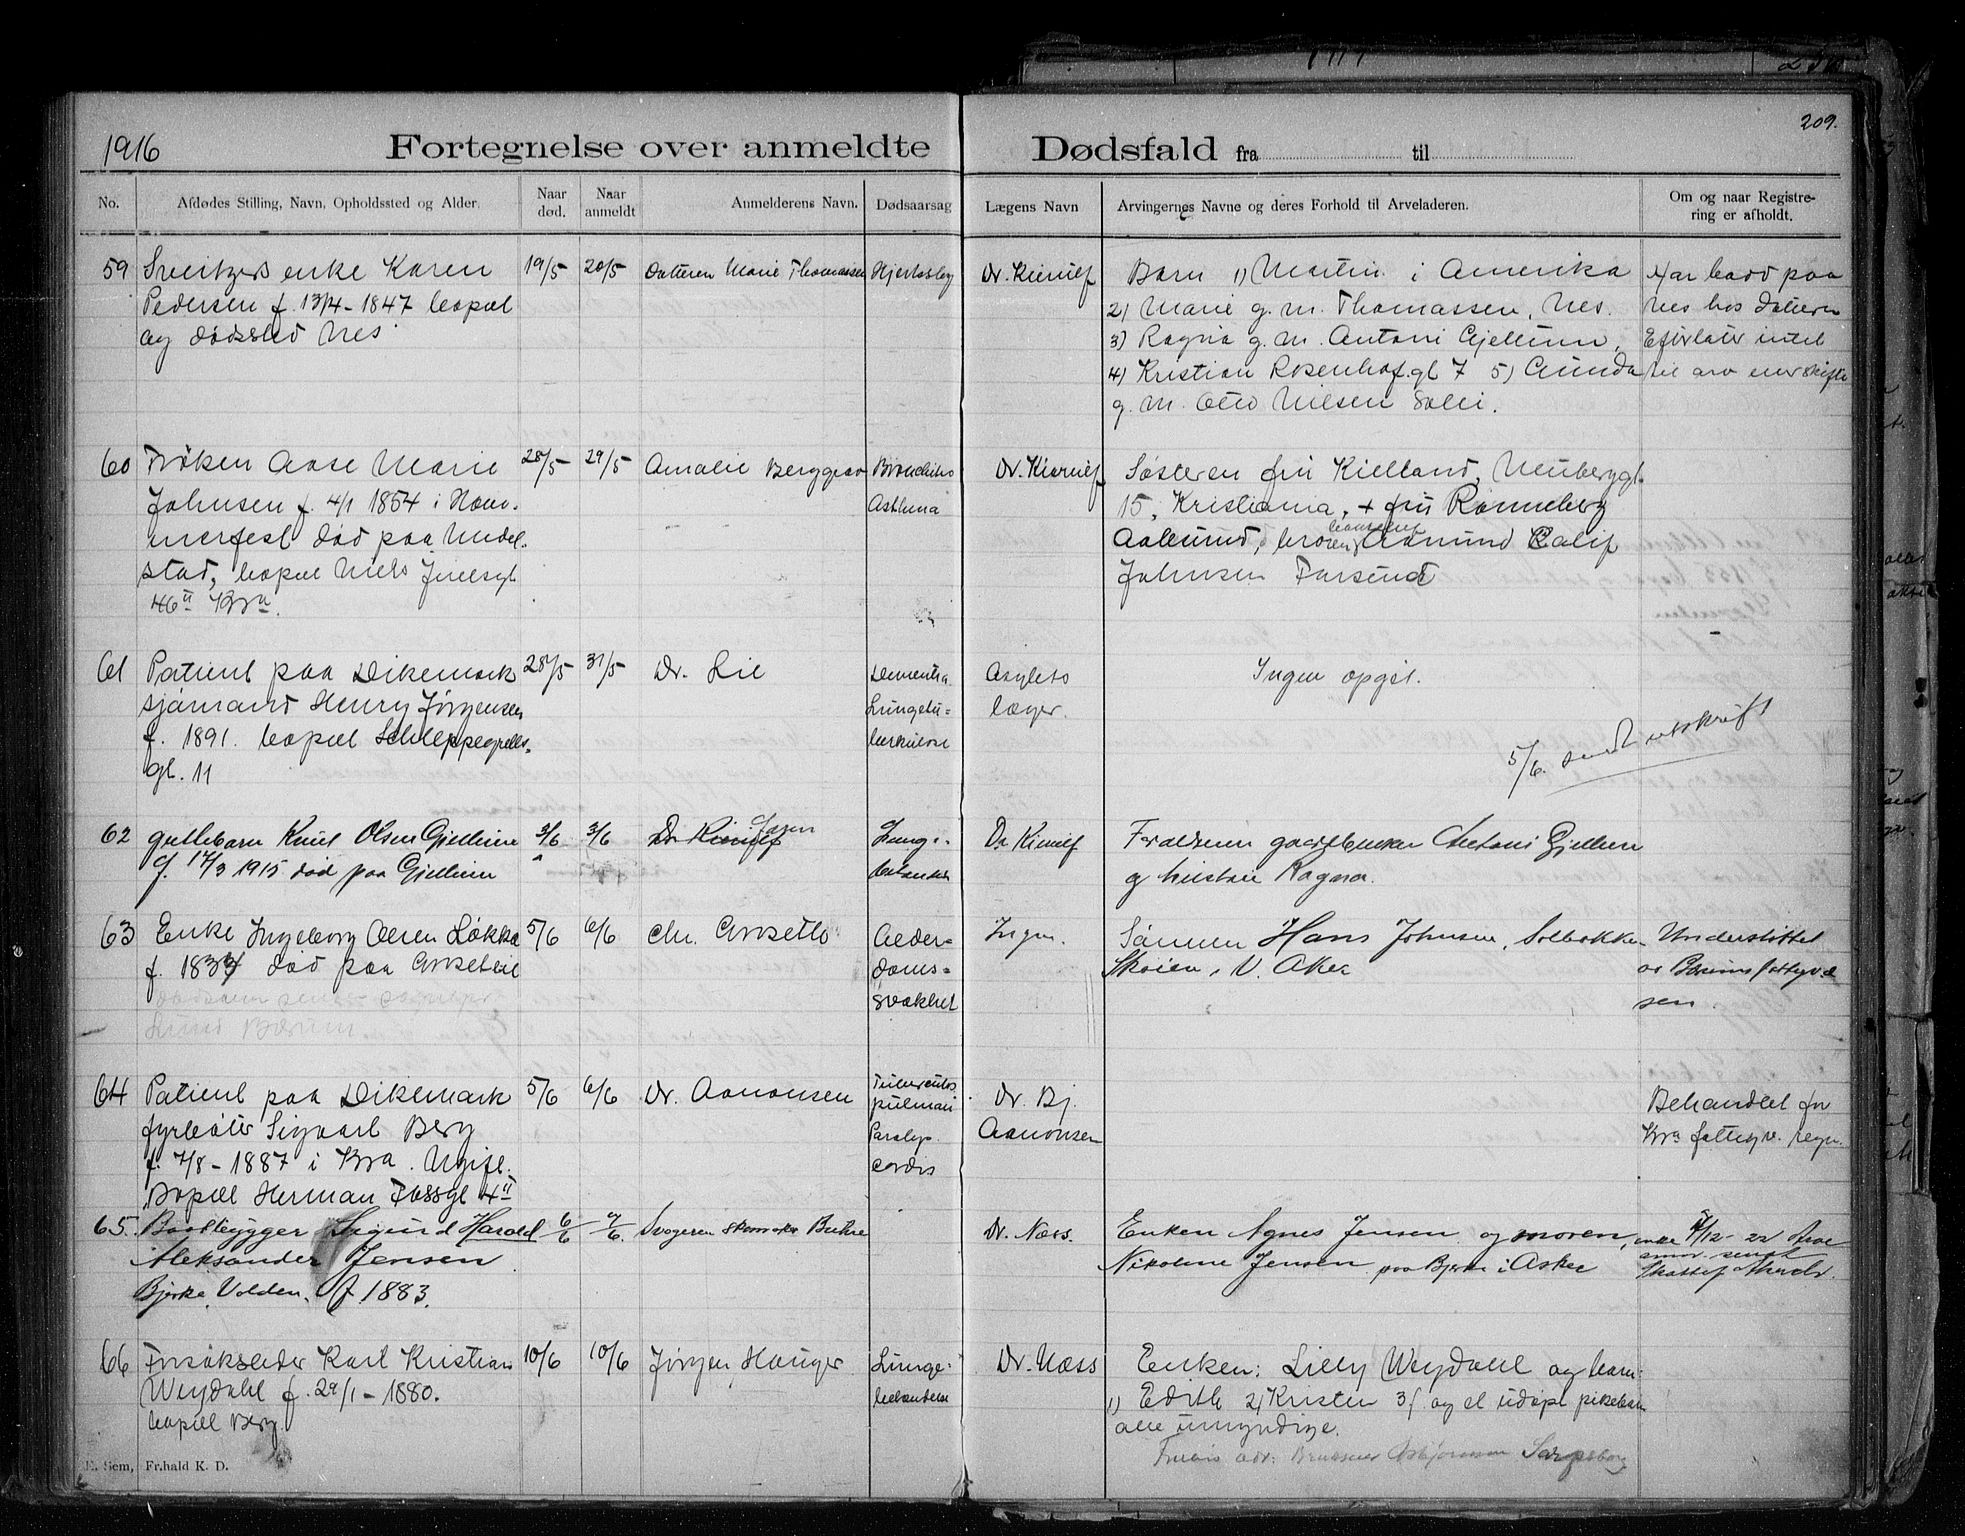 1916 Fortegnelse over anmeldte Dødsfald fra til 209.
No. Afdødes Stilling, Navn, Opholdssted og Alder. Naar død. Naar anmeldt Anmelderens Navn. Dødsaarsag Lægens Navn Arvingernes Navne og deres Forhold til Arveladeren. Om og naar Registrering er afholdt.
59 Sveitzers enke Karen 19/5 20/5 Datteren Marie Thomassen Hjerteslag Dr. Kierulf Barn 1) Martin i Amerika Har bodd paa
Pedersen f. 13/4-1847 bopæl 2) Marie g. m. Thomassen, Nes. Nes hos datteren
og dødssted Nes 3) Ragna g. m. Antoni Gjellum, Efterlater intet
4) Kristian Rosenhof.gt 7 5) Gunda til arv eller skifte
g. m. Otto Nilsen
60 Frøken Aase Marie 28/5 29/5 Amalie Berggrav Bronchitis Dr. Kierulf Søsteren fru Kielland, Neuberggt.
Johnsen f. 4/1 1854 i Ham- Asthma 15, Kristiania, + fru Rønneberg
merfest død paa Undel- Aalesund, broren Aamund Ralif
stad, bopæl Niels Juelsgt. Johnsen Farsund
46 II Kra.
61 Patient paa Dikemark 28/5 31/5 Dr. Lie Dementia Asylets Ingen opgit.
sjømand Henry Jørgensen Lungetu= læger.
f. 1891. bopæl Schleppegrells- berkulose 5/6. sendt utskrift
gt. 11
62 guttebarn Knut Olsen Gjellum 3/6 3/6 Dr Kierulf Faren Lunge- Dr Kierulf Forældrene gaardbruker Antoni Gjellum
f. 17/3 1915 død paa Gjellum betendelse og hustru Ragna.
63 Enke Ingeborg Olsen Løkka 5/6 6/6 Chr. Grøsetto Alder= Ingen. Sønnen Hans Johnsen, Solbakken Understøttet
f. 1833 død paa doms= Skøien, V. Aker av Bærums fattigvæ
svakhet sen.
Lund Bærum
64 Patient paa Dikemark 5/6 6/6 Dr. Aanonsen Tuberculos Dr. Bj. Behandlet for
fyrbøter Sigvart Berg pulmon Aanonsen Kra fattigv. regn.
f. 7/8-1887 i Kra. Ugift. Paralys.
Bopæl Herman Fossgt 4 II cordis
65. Baatbygger Sigurd Harald 6/6 7/6. Svogeren skomaker Dr. Næss. Enken Agnes Jensen og moren, enke 4/12-22 Arve
Aleksander Jensen Nikoline Jensen paa Bjerke i Asker anm. sendt
Bjerke, Volden. f 1883. Skattef Akers.
66 Forsøksleder Karl Kristian 10/6 10/6 Jørgen Hauger Lunge= Dr. Næss Enken: Lilly Weydahl og barn:
Weydahl f. 29/1-1880. betendelse 1) Edith 2) Kristen 3) og et udøpt pikebarn
bopæl Berg alle umyndige.
Fruens adr: Asbjørnsen Sarpsborg
E. Sem, Fr.hald K. D.